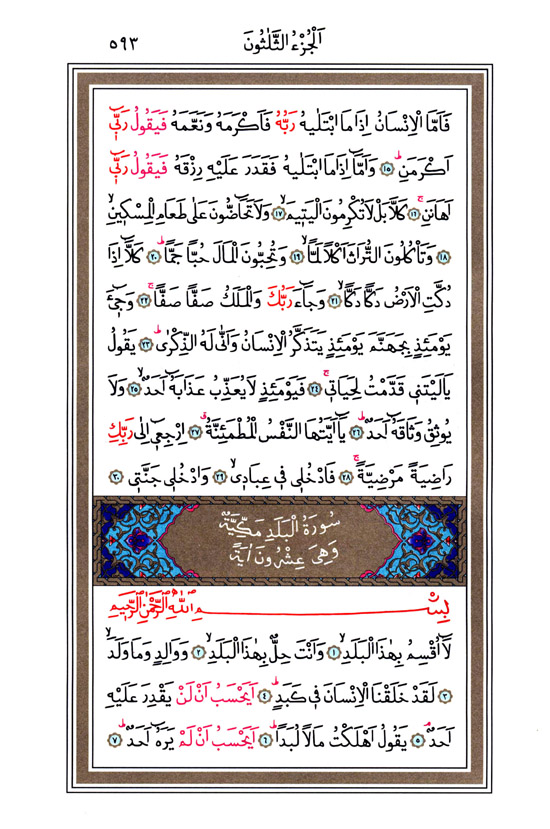 اَلْجُزْءُ الثَّلٰثُونَ ٥٩٣
فَاَمَّا الْاِنْسَانُ اِذَا مَا ابْتَلٰيهُ رَبُّهُ فَاَكْرَمَهُ وَنَعَّمَهُ فَيَقُولُ رَبّ۪ٓي
اَكْرَمَنِۜ ﴿١٥﴾ وَاَمَّٓا اِذَا مَا ابْتَلٰيهُ فَقَدَرَ عَلَيْهِ رِزْقَهُ فَيَقُولُ رَبّ۪ٓي
اَهَانَنِۚ ﴿١٦﴾ كَلَّا بَلْ لَا تُكْرِمُونَ الْيَت۪يمَۙ ﴿١٧﴾ وَلَا تَحَٓاضُّونَ عَلٰى طَعَامِ الْمِسْك۪ينِۙ
﴿١٨﴾ وَتَأْكُلُونَ التُّرَاثَ اَكْلًا لَمًّاۙ ﴿١٩﴾ وَتُحِبُّونَ الْمَالَ حُبًّا جَمًّاۜ ﴿٢٠﴾ كَلَّٓا اِذَا
دُكَّتِ الْاَرْضُ دَكًّا دَكًّاۙ ﴿٢١﴾ وَجَٓاءَ رَبُّكَ وَالْمَلَكُ صَفًّا صَفًّاۚ ﴿٢٢﴾ وَج۪يٓءَ
يَوْمَئِذٍ بِجَهَنَّمَ يَوْمَئِذٍ يَتَذَكَّرُ الْاِنْسَانُ وَاَنّٰى لَهُ الذِّكْرٰىۜ ﴿٢٣﴾ يَقُولُ
يَالَيْتَن۪ي قَدَّمْتُ لِحَيَات۪يۚ ﴿٢٤﴾ فَيَوْمَئِذٍ لَا يُعَذِّبُ عَذَابَهُٓ اَحَدٌۙ ﴿٢٥﴾ وَلَا
يُوثِقُ وَثَاقَهُٓ اَحَدٌۜ ﴿٢٦﴾ يَٓا اَيَّتُهَا النَّفْسُ الْمُطْمَئِنَّةُۗ ﴿٢٧﴾ اِرْجِع۪ٓي اِلٰى رَبِّكِ
رَاضِيَةً مَرْضِيَّةًۚ ﴿٢٨﴾ فَادْخُل۪ي ف۪ي عِبَاد۪يۙ ﴿٢٩﴾ وَادْخُل۪ي جَنَّت۪ي ﴿٣٠﴾
سُورَةُ الْبَلَدِ مَكِّيَّةٌ
وَهِيَ عِشْرُونَ اٰيَةً
بِسْمِ اللّٰهِ الرَّحْمٰنِ الرَّح۪يمِ
لَٓا اُقْسِمُ بِهٰذَا الْبَلَدِۙ ﴿١﴾ وَاَنْتَ حِلٌّ بِهٰذَا الْبَلَدِۙ ﴿٢﴾ وَوَالِدٍ وَمَا وَلَدَۙ
﴿٣﴾ لَقَدْ خَلَقْنَا الْاِنْسَانَ ف۪ي كَبَدٍۜ ﴿٤﴾ اَيَحْسَبُ اَنْ لَنْ يَقْدِرَ عَلَيْهِ
اَحَدٌۢ ﴿٥﴾ يَقُولُ اَهْلَكْتُ مَالًا لُبَدًاۜ ﴿٦﴾ اَيَحْسَبُ اَنْ لَمْ يَرَهُٓ اَحَدٌۜ ﴿٧﴾